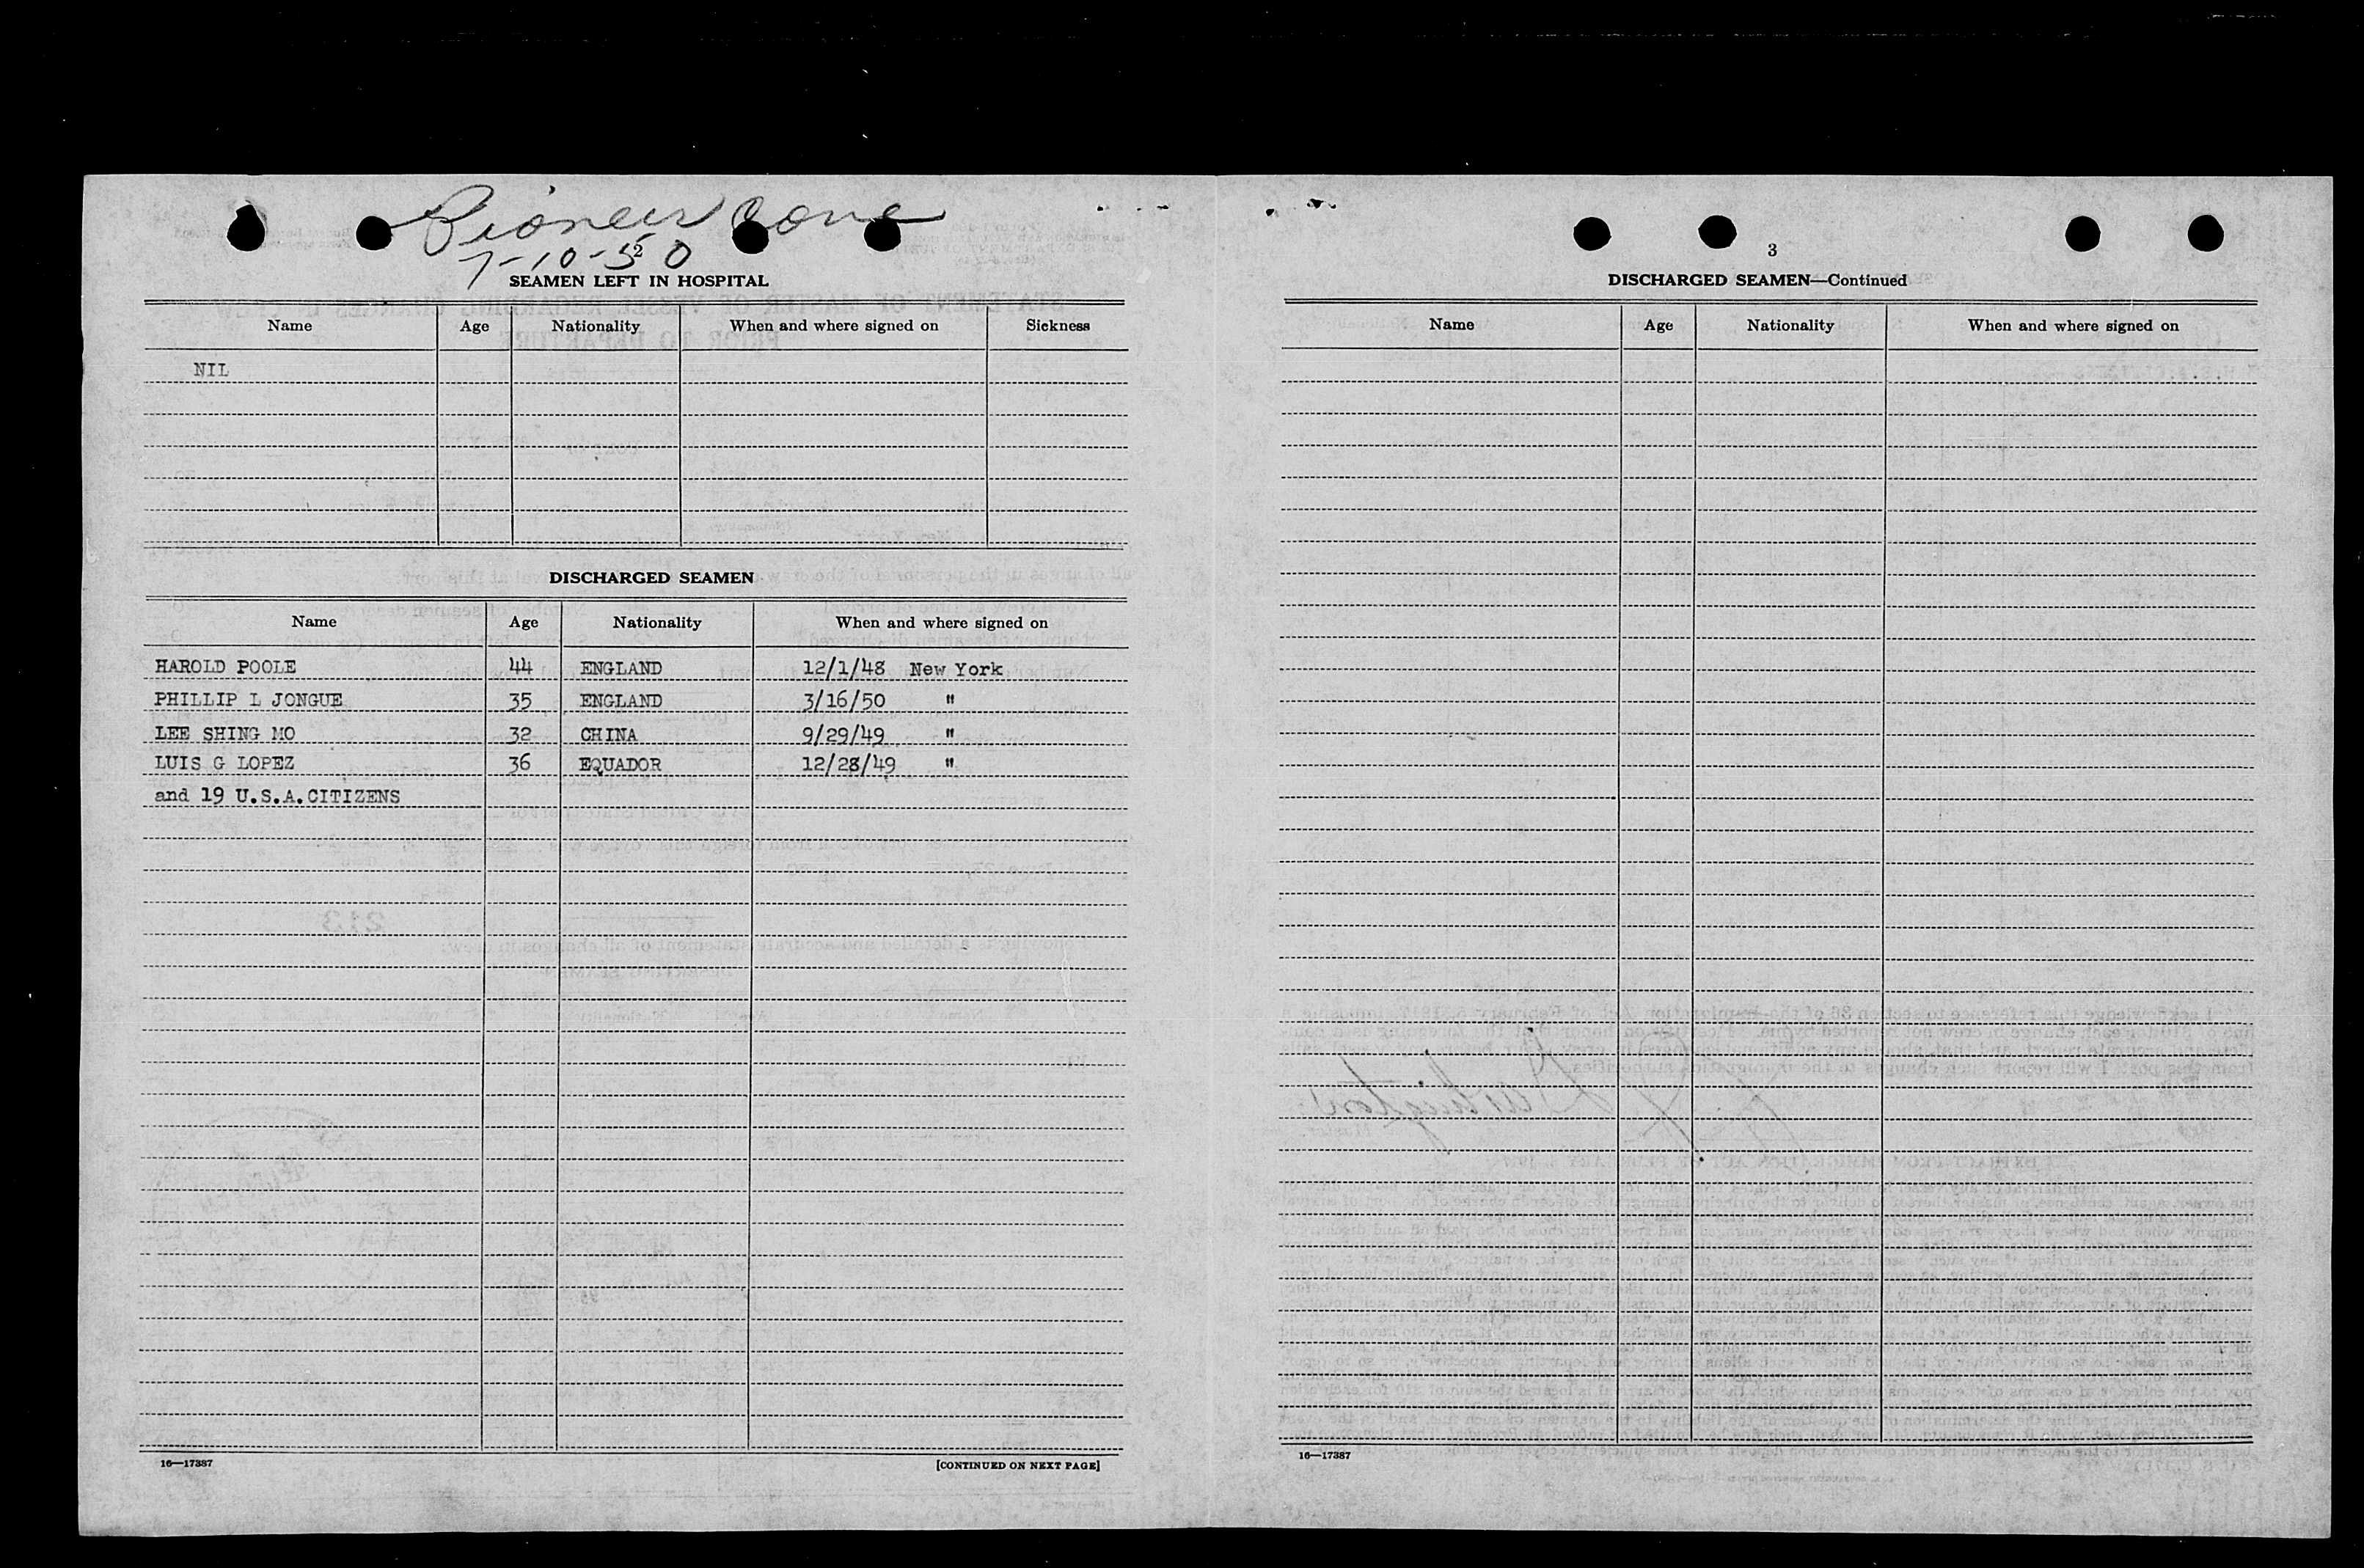 Pioneer Cove
7-10-50
2
SEAMEN LEFT IN HOSPITAL
Name Age Nationality When and where signed on Sickness
NIL
DISCHARGED SEAMEN
Name Age Nationality When and where signed on
HAROLD POOLE 44 ENGLAND 12/1/48 New York
PHILLIP L JONGUE 35 ENGLAND 3/16/50 "
LEE SHING MO 32 CHINA 9/29/49 "
LUIS G LOPEZ 36 EQUADOR 12/28/49 "
and 19 U.S.A.CITIZENS
16—17387 [CONTINUED ON NEXT PAGE]
3
DISCHARGED SEAMEN—Continued
Name Age Nationality When and where signed on
16—17387